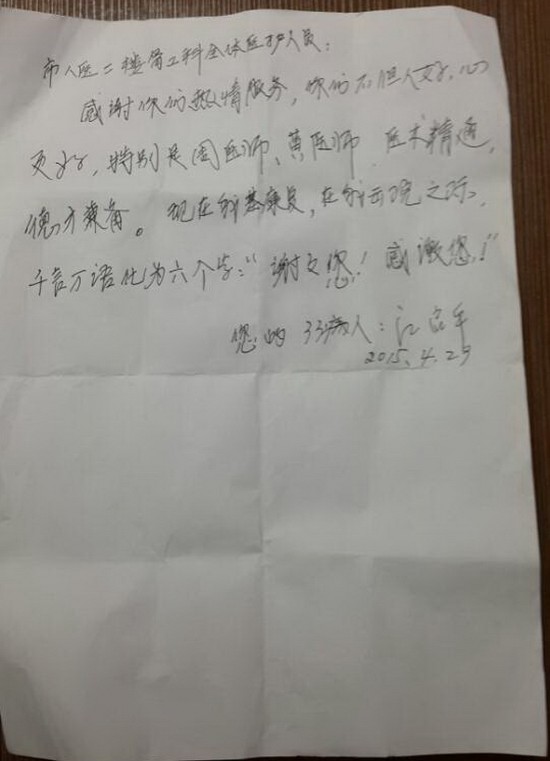 市人医二楼骨二科全体医护人员：
感谢你们热情服务，你们不但人好，心
更好，特别是周医师、黄医师 医术精通，
德才兼备。现在我基康复，在我出院之际，
千言万语化为六个字：“谢谢您！感激您！”
您的 33病人：江
2015.4.29